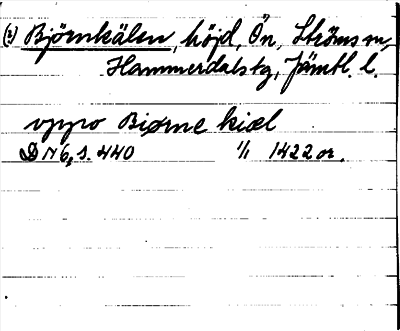 (2) Björnkälen, höjd, Ön, Ströms sn,
Hammerdals tg, Jämtl. l.
vppo Biørne kiæl
DN 6, s. 440 1/1 1422 or.